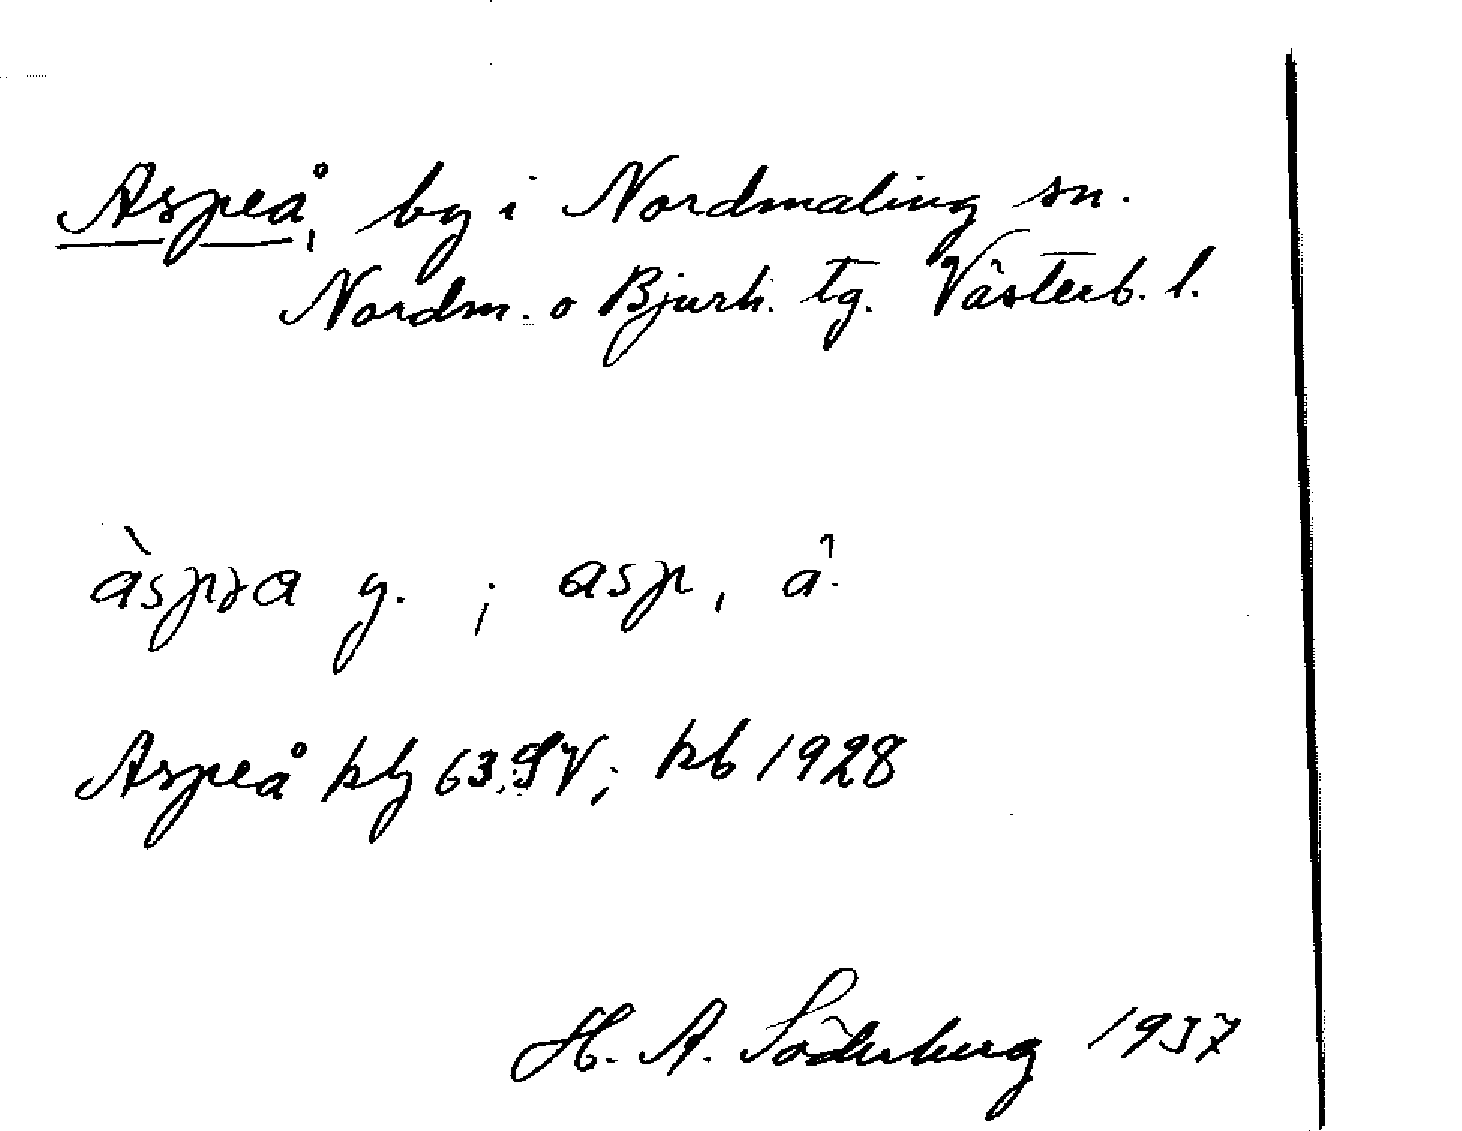 Aspeå, by i Nordmaling sn.
Nordm. o Bjurh. tg. Västerb. l.
àspɘa y. ; asp, å.
Aspeå kbl 63 SV; kb 1928
H. A. Söderberg 1937